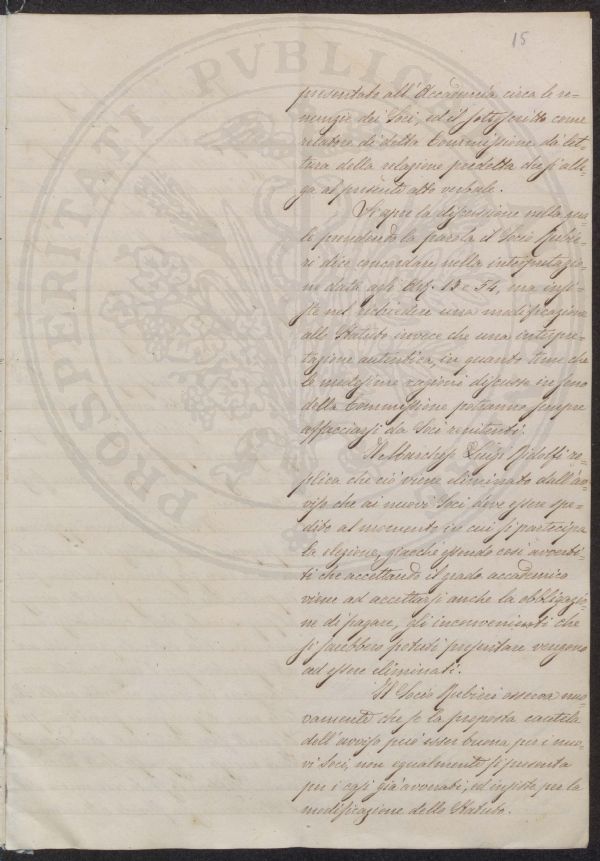 15
presentato all'Accademia circa le re-
nunzie dei Soci, ed il sottoscritto come
relatore di detta Commissione dà let-
tura della relazione predetta che si alle-
ga al presente atto verbale.
Si apre la discussione nella qua-
le prendendo la parola il Socio Rubie-
ri dice concordare nella interpretazio-
ne data agli Art. 13 e 54, ma insi-
ste nel richiedere una modificazione
allo Statuto invece che una interpre-
tazione autentica, in quanto teme che
le medesime ragioni discusse in seno
della Commissione potranno sempre
affacciarsi da Soci renitenti.
Il Marchese Luigi Ridolfi re-
plica che ciò viene eliminato dall'av-
viso che ai nuovi Soci deve esser spe-
dito al momento in cui si partecipa
la elezione, giacché essendo così avverti-
ti che accettando il grado accademico
viene ad accettarsi anche la obbligazio-
ne di pagare, gli inconvenienti che
si sarebbero potuti presentare vengono
ad essere eliminati.
Il Socio Rubieri osserva nuo-
vamente che se la proposta cautela
dell'avviso può esser buona per i nuo-
vi Soci, non egualmente si presenta
per i casi già avverati, ed insiste per la
modificazione dello Statuto.
PROSPERITATI PUBLICAE